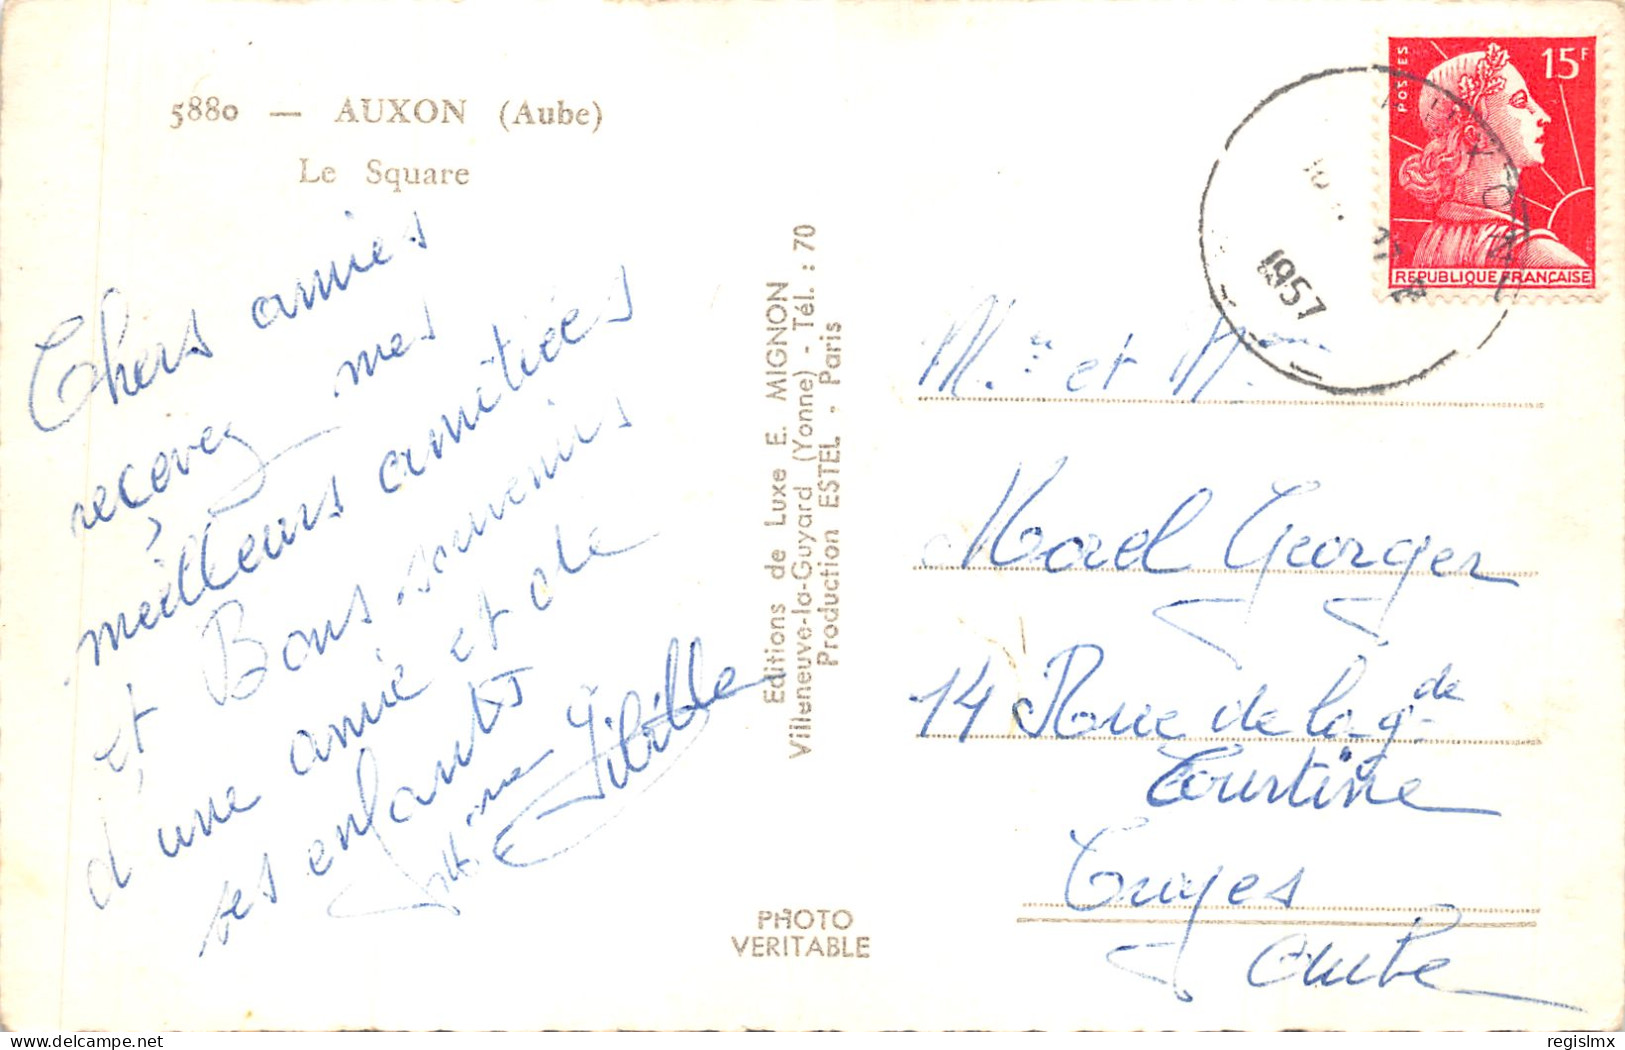 5880 — AUXON (Aube)
Le Square
Chers amies
recevez mes
meilleurs amitiées
et Bons souvenirs
d'une amie et de
ses enfants
Editions de Luxe E. MIGNON
Villeneuve-la-Guyard (Yonne) - Tél. : 70
Production ESTEL - Paris
PHOTO
VERITABLE
POSTES
15F
REPUBLIQUE FRANÇAISE
AUXON
1957
Mr et Mme
Morel Georges
14 Rue de la gde
Courtine
Troyes
Aube
delcampe.net
regislmx